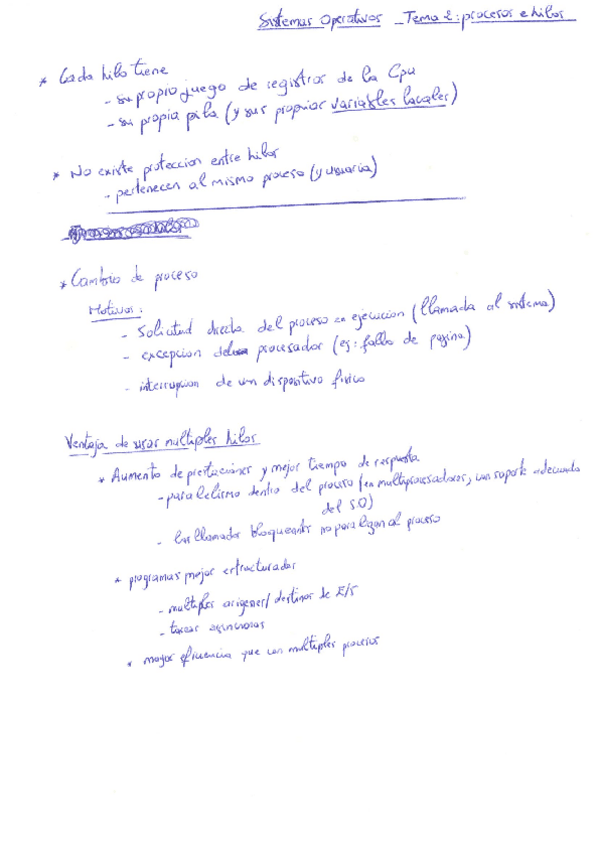 Sistemas Operativos _ Tema 2: procesos e hilos
* Cada hilo tiene
- su propio juego de registros de la Cpu
- su propia pila (y sus propias variables locales)
* No existe proteccion entre hilos
- pertenecen al mismo proceso (y usuario)
* Cambio de proceso
Motivos:
- Solicitud directa del proceso en ejecucion (llamada al sistema)
- excepcion del procesador (ej: fallo de pagina)
- interrupcion de un dispositivo fisico
Ventaja de usar multiples hilos
* Aumento de prestaciones y mejor tiempo de respuesta
- paralelismo dentro del proceso (en multiprocesadores, con soporte adecuado
del S.O)
- las llamadas bloqueantes no paralizan al proceso
* programas mejor estructurados
- multiples origenes/destinos de E/S
- tareas asincronas
* mayor eficiencia que con multiples procesos